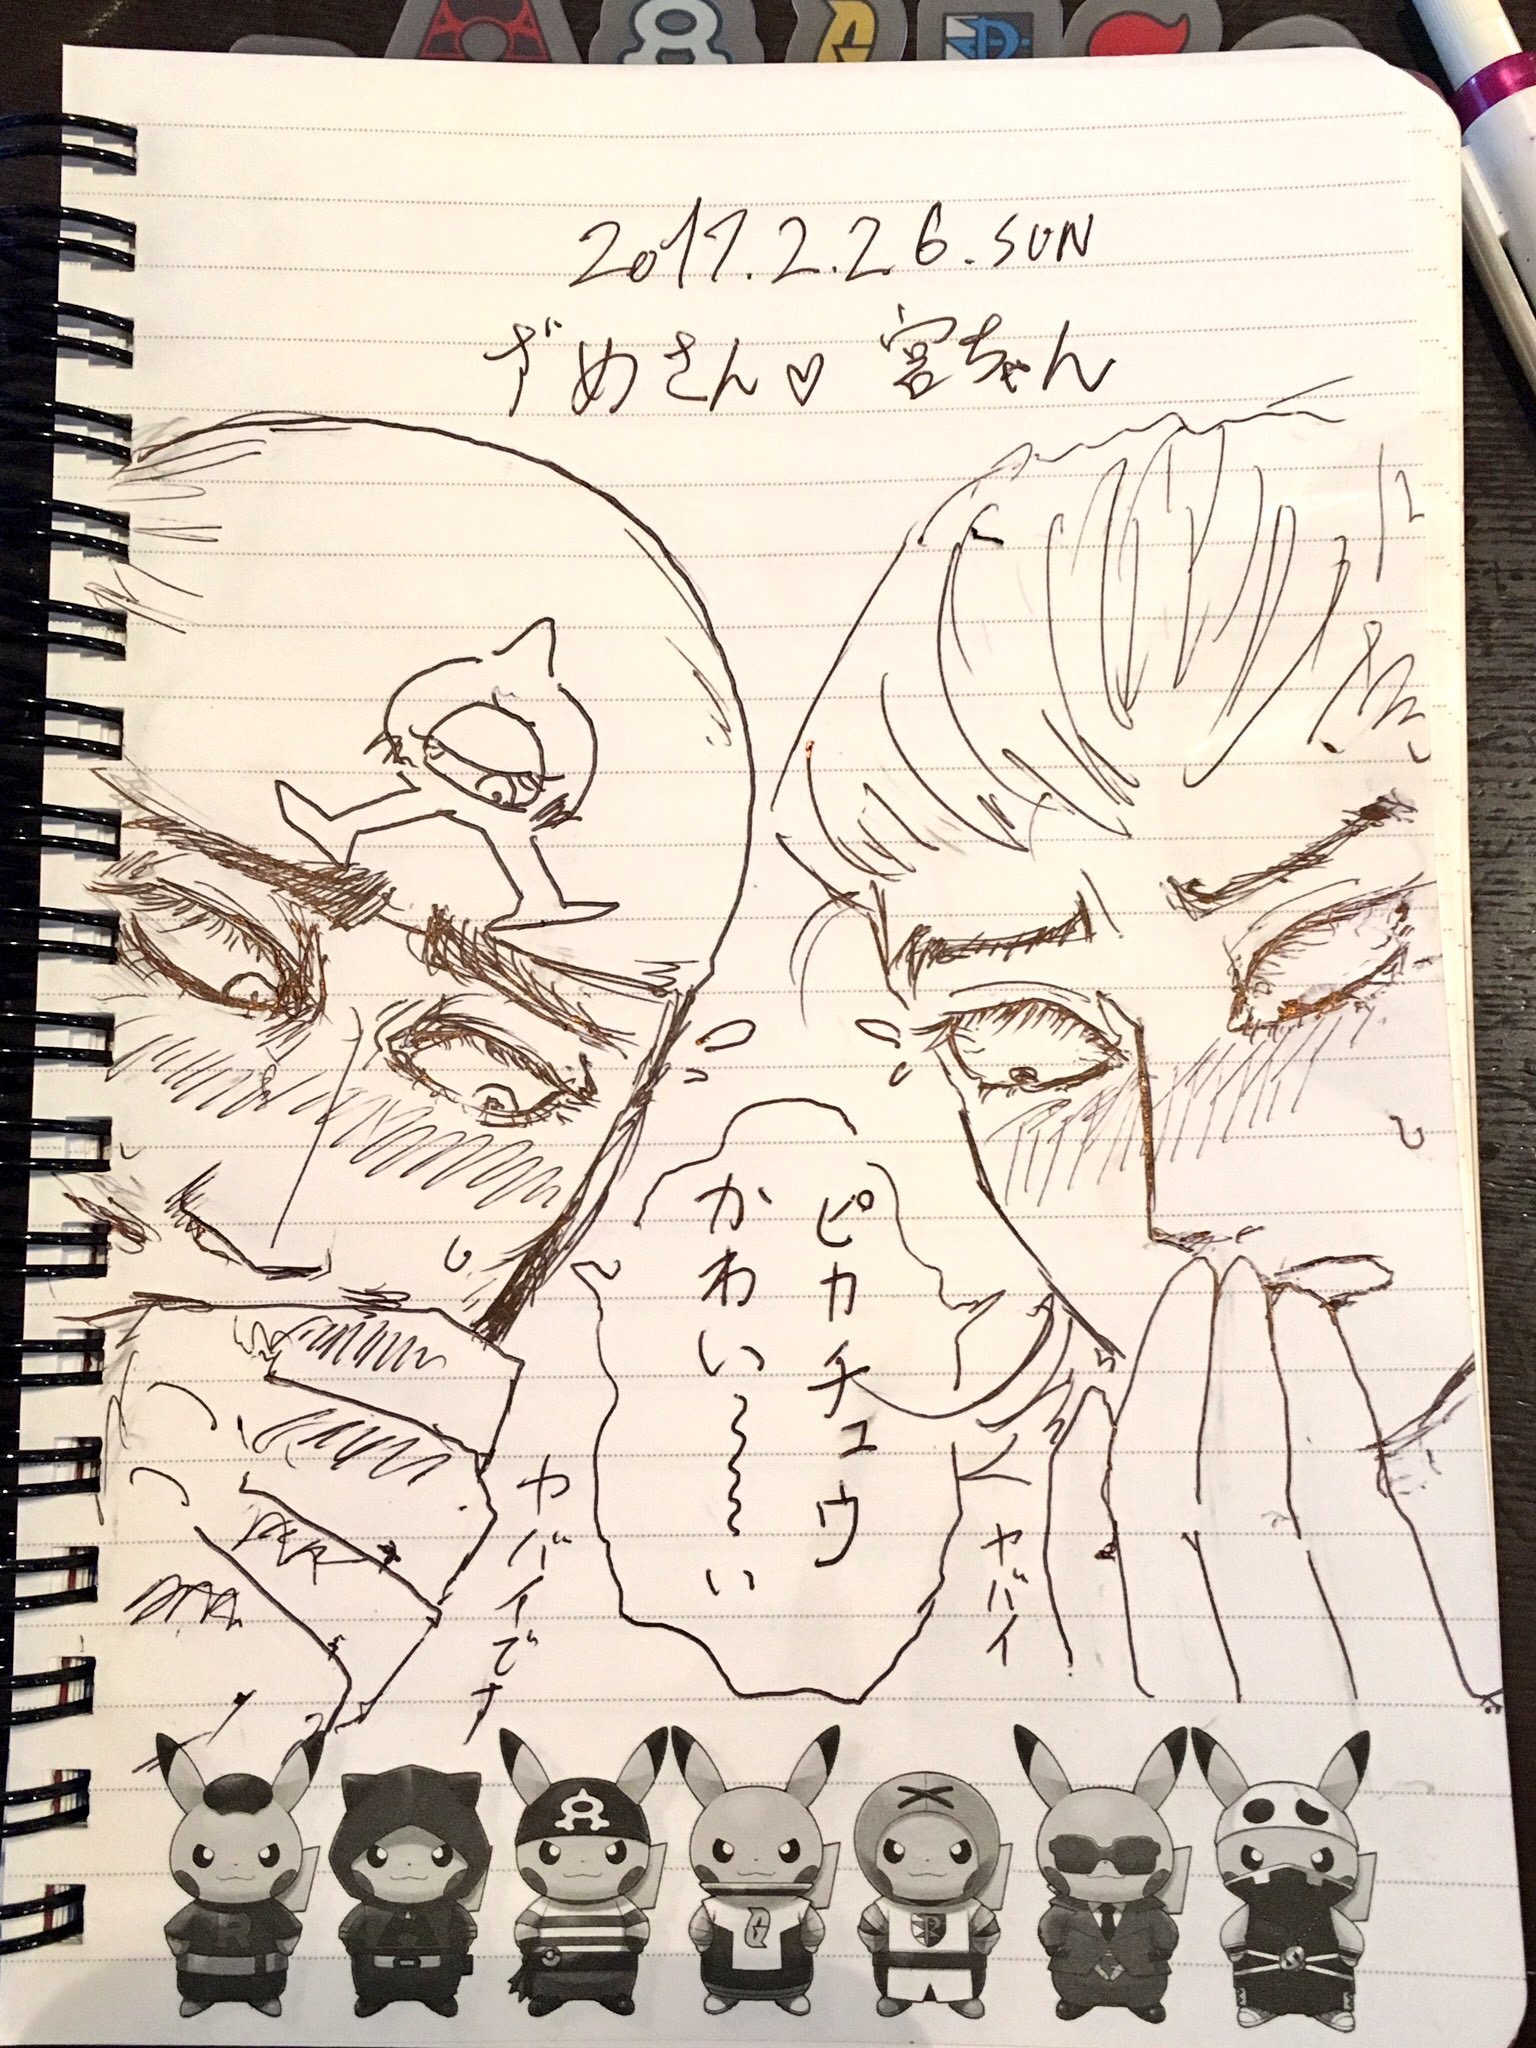 2017.2.26.SUN
ざめさん♡ 宮ちゃん
ピカチュウ
かわい〜〜〜い
ヤバイ
ヤバイです
R